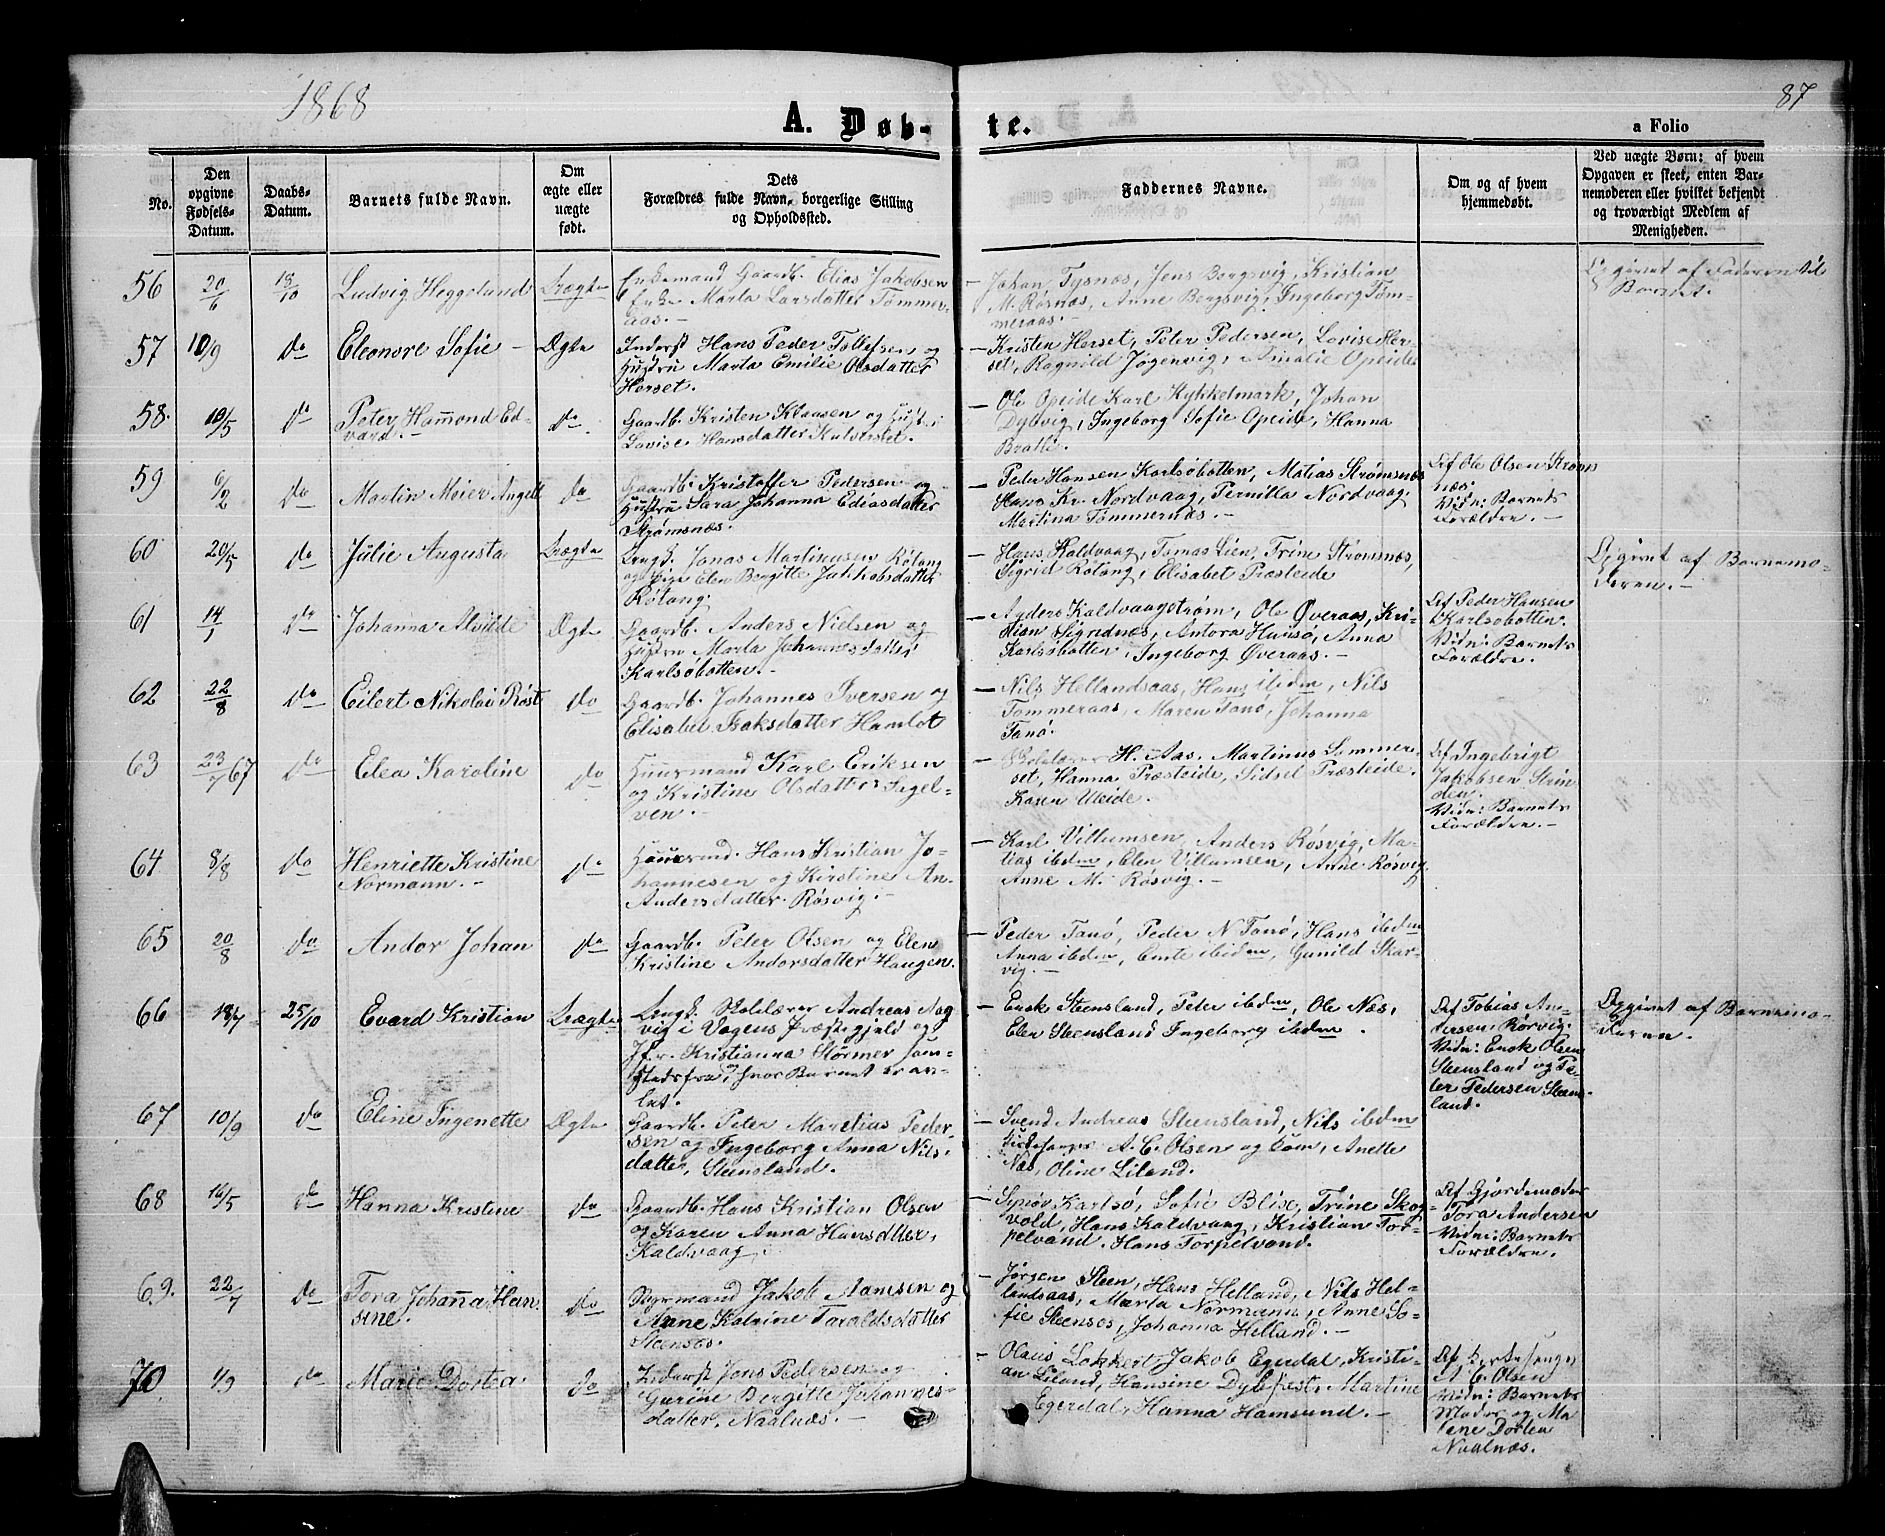 1868
87
A. Døb-
te.
a Folio
No.
Den
opgivne
Fødsels-
Datum.
Daabs-
Datum.
Barnets fulde Navn.
Om
ægte eller
uægte
født.
Dets
Forældres fulde Navn, borgerlige Stilling
og Opholdssted.
Faddernes Navne.
Om og af hvem
hjemmedøbt.
Ved uægte Børn: af hvem
Opgaven er skeet, enten Bar-
nemoderen eller hvilket bekjendt
og troværdigt Medlem af
Menigheden.
56
20/6
18/10
Ludvig Heggelund
Uægte
Enkemand Gaardb. Elias Jakobsen
Enke Marta Larsdatter Tømmer-
aas.
- Johan Tysnæs, Jens Bergsvig, Kristian
M. Røsnæs, Anne Bergsvig, Ingeborg Tøm-
meraas.
Opgivet af Faderen til
Barnet.
57
10/9
do
Eleonore Sofie -
Ægte
Inderst Hans Peder Tollefsen og
Hustru Marta Emilie Olsdatter
Horset.
- Kristen Herset, Peter Pedersen, Lovise Her-
set, Ragnild Jøgenvig, Amalie Opeide
58.
10/5
do
Peter Hamond Ed-
vard. -
do
Gaardb. Kristen Klausen og Hust.
Lovise Hansdatter Kalvirket.
- Ole Opeide Karl Stykkelmark, Johan
Dybvig, Ingeborg Sofie Opeide, Hanna
Bratli.
59
6/2
do
Martin Meier Angell
do
Gaardb. Kristoffer Pedersen og
Hustru Sara Johanna Ediasdatter
Strømsnæs.
- Peder Hansen Karlsøbotten, Matias Strømsnæs
Hans Kr. Nordvaag, Pernilla Nordvaag,
Martina Tømmernæs. -
Def Ole Olsen Strøms
næs.
Vidn: Barnets
Forældre. -
60
20/5
do
Julie Augusta
Uægte
Ungk. Jonas Martinusen Røtang
og Pige Elen Bergitte Jakkobsdatter
Røtang.
- Hans Kaldvaag, Tomas Lien, Trine Strømsnæs,
Sigrid Røtang, Elisabet Præsteide
Opgivet af Barnemo-
deren. -
61
14/1
do
Johanna Alvilde
Ægte
Gaardb. Anders Nielsen og
Hustru Marta Johannesdatter
Karlsøbotten. -
- Anders Kaldvaagstrøm, Ole Øveraas, Kri-
stian Sigridnæs, Antora Hunsø, Anna
Karlsøbotten, Ingeborg Øveraas. -
Def Peder Hansen
Karlsøbotten.
Vidn: Barnets
Forældre. -
62
22/8
do
Eilert Nikolai Røst
do
Gaardb. Johannes Iversen og
Elisabet Isaksdatter Hamlot
- Nils Hellandsaas, Hans ibidem, Nils
Tømmeraas, Maren Tanø, Johanna
Tanø.
63
23/7 67
do
Elea Karoline
do
Huusmand Karl Eriksen
og Kristine Olsdatter Sagel-
ven. -
- Skolelærer H. Aas. Martinus Sommer-
set, Hanna Præsteide, Sidsel Præsteide.
Karen Uteide.
Def Ingebrigt
Jakobsen Strin
den.
Vidn: Barnets
Forældre. -
64
8/8
do
Henriette Kristine
Normann. -
do
Huusmd. Hans Kristian Jo-
hannesen og Kirstine An-
Andersdatter Røsvig. -
- Karl Villumsen, Anders Røsvig, Ma-
tias ibidem, Elen Villumsen, Anne Røsvig,
Anne M. Røsvig. -
65
20/8
do
Andor Johan
do
Gaardb. Peter Olsen og Elen
Kristine Andorsdatter Haugen.
- Peder Tanø, Peder N Tanø, Hans ibidem
Anna ibidem, Emte ibidem, Gunild Skar-
vig. -
66
18/7
25/10
Evard Kristian
Uægte
Ungk. Skolelærer Andreas Aag
vig i Vogens Præstegjeld og
Jfr. Kristianna Størmer sam-
stedsfra, hvor Barnet er av-
let.
- Enok Steensland, Peter ibidem, Ole Næs,
Elen Steensland Ingeborg ibidem
Def Tobias An-
dersen, Rørvig.
Vidn: Enok Olsen
Steensland og Pe-
ter Pedersen Steens-
land.
Opgivet af Barnemo-
deren.
67
10/9
do
Eline Ingenette
Ægte
Gaardb. Peter Martius Peder-
sen og Ingeborg Anna Nils-
datter, Steensland.
- Svend Andreas Steensland, Nils ibidem
Kirkesanger A. C. Olsen og Kone, Anette
Næs, Oline Liland.
68
16/5
do
Hanna Kristine
do
Gaardb. Hans Kristian Olsen
og Karen Anna Hansdatter,
Kaldvaag.
- Synøv Karlsø, Sofie Blixe, Trine Skog-
vold, Hans Kaldvaag, Kristian Tor-
pelvand. Hans Torpelvand.
Def Gjordemoder
Tora Andersen
Vidn: Barnets
Forældre.
69.
22/7
do
Tora Johanna Han
sine.
do
Styrmand Jakob Aamesen og
Anne Katrine Taraldsdatter
Steensøs.
- Jørgen Steen, Hans Helland, Nils Hel-
landsaas, Marta Normann, Anne So-
fie Steensøs, Johanna Helland. -
70
1/9
do
Marie Dortea.
do
Inderst Jens Pedersen og
Gurine Bergitte Johannes-
datter, Naalnæs. -
- Olaus Lokkert, Jakob Egerdal, Kristi-
an Liland, Hansine Dybfest, Martine
Egerdal, Hanna Hamsund. -
Def Kirkesanger
A C. Olsen
Vidn: Barnets
Moder og Ma
lene Dortea
Naalnæs.